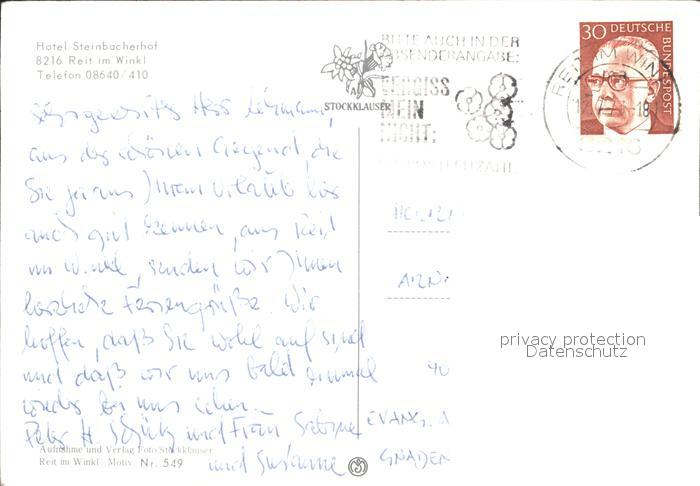 Hotel Steinbacherhof
8216 Reit im Winkl
Telefon 08640/410
BITTE AUCH IN DER
ABSENDERANGABE:
VERGISS
MEIN
NICHT:
DIE POSTLEITZAHL
STOCKLAUSER
REIT IM WINKL
8216
30 DEUTSCHE
BUNDESPOST
Sehr geehrter Herr Lehmann,
aus der schönen Gegend, die
Sie ja aus Ihrem Urlaub her
auch gut kennen, aus Reit
im Winkl, senden wir Ihnen
herzliche Feriengrüße. Wir
hoffen, daß Sie wohl auf sind
und daß wir uns bald einmal
wieder bei uns sehen.
Peter H. Schütz und Frau Sabine
und Susanne
EVANG.
GNADEN
Aufnahme und Verlag Foto Stocklauser
Reit im Winkl · Motiv Nr. 549
privacy protection
Datenschutz